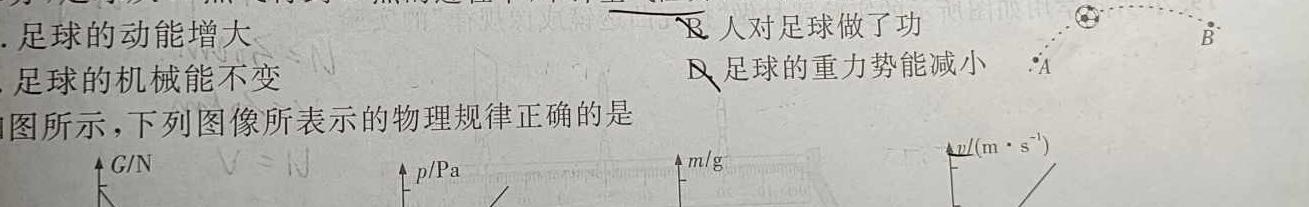 . 足球的动能增大
B. 人对足球做了功
B
. 足球的机械能不变
D. 足球的重力势能减小
A
图所示,下列图像所表示的物理规律正确的是
G/N
p/Pa
m/g
v/(m·s⁻¹)